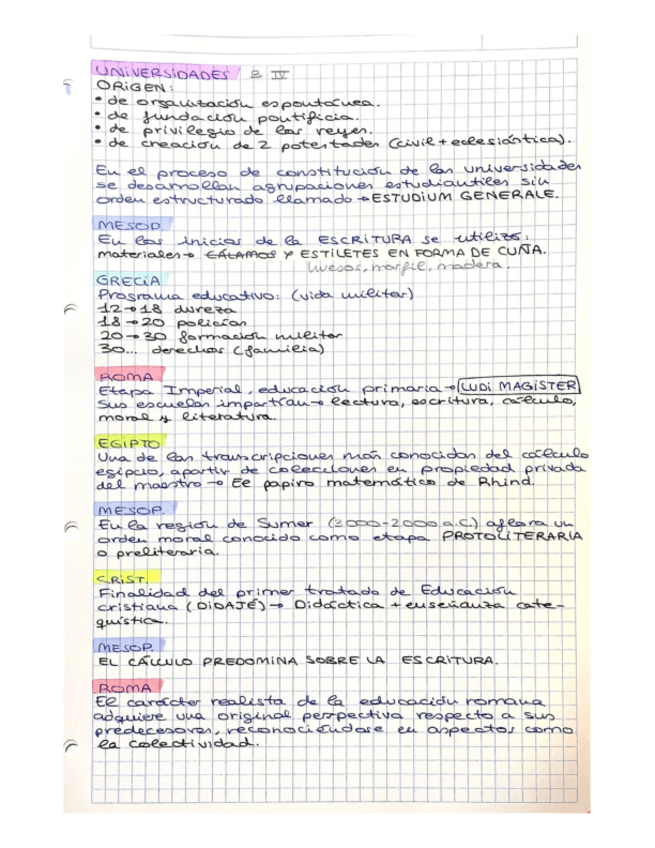 UNIVERSIDADES B IV
ORIGEN:
• de organización espontánea.
• de fundación pontificia.
• de privilegio de los reyes.
• de creación de 2 potestades (civil + eclesiástica).
En el proceso de constitución de las universidades
se desarrollan agrupaciones estudiantiles sin
orden estructurado llamado → ESTUDIUM GENERALE.
MESOP.
En los inicios de la ESCRITURA se utilizó:
materiales → CÁLAMOS Y ESTILETES EN FORMA DE CUÑA.
huesos, marfil, madera.
GRECIA
Programa educativo: (vida militar)
12 → 18 dureza
18 → 20 policías
20 → 30 formación militar
30... derechos (familia)
ROMA
Etapa Imperial, educación primaria → LUDI MAGISTER
Sus escuelas impartían → lectura, escritura, cálculo,
moral y literatura.
EGIPTO
Una de las transcripciones más conocidas del cálculo
egipcio, apartir de colecciones en propiedad privada
del maestro → El papiro matemático de Rhind.
MESOP.
En la región de Sumer (2000-2000 a.C.) aflora un
orden moral conocido como etapa PROTOLITERARIA
o preliteraria.
CRIST.
Finalidad del primer tratado de Educación
cristiana (DIDAJÉ) → Didáctica + enseñanza cate-
quística.
MESOP.
EL CÁLCULO PREDOMINA SOBRE LA ESCRITURA.
ROMA
El carácter realista de la educación romana
adquiere una original perspectiva respecto a sus
predecesores, reconociéndose en aspectos como
la colectividad.